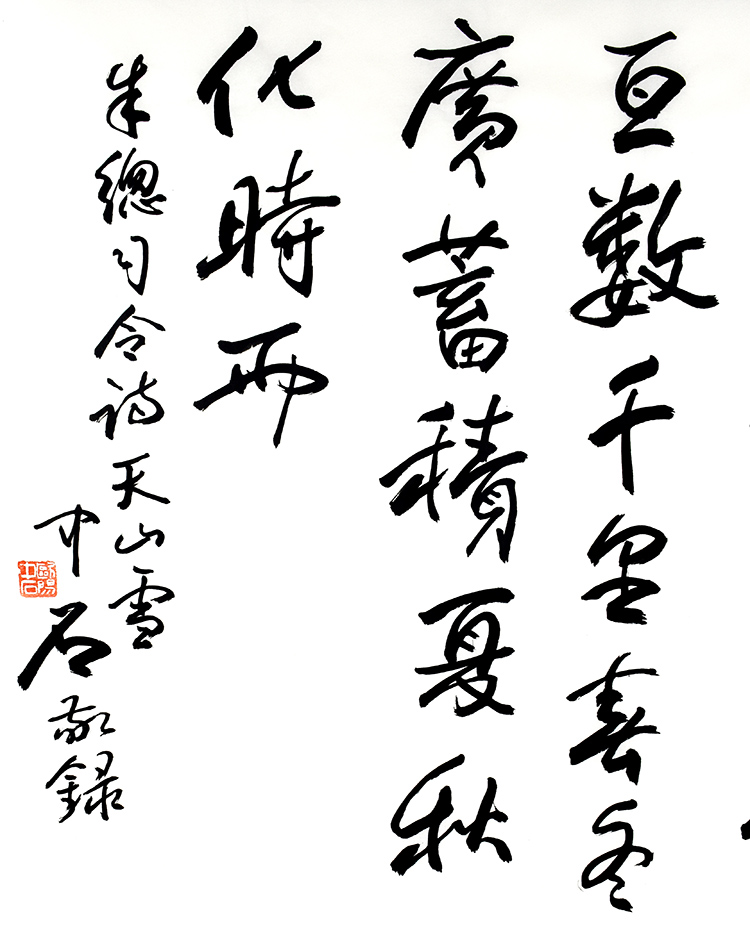 亘数千里春冬
廣蓄積夏秋
化時雨
朱總司令詩天山雪
中石敬録
歐陽中石